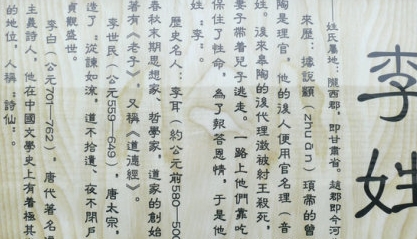 李姓
姓氏屬地：隴西郡，即甘肅省。趙郡即今河
來歷：據說顓（zhuān）頊帝的曾
陶是理官，他的後人便用官名理（音
姓。後來皋陶的後代理徵被紂王殺死，
妻子帶着兒子逃走。一路上他們靠吃
保住了性命，為了報答恩情，于是他
姓"李"。
歷史名人：李耳（約公元前580—500
春秋末期思想家、哲學家，道家的創始
著有《老子》，又稱《道德經》。
李世民（公元559—649），唐太宗，
造了"從諫如流，道不拾遺、夜不閉戶
貞觀盛世。
李白（公元701—762），唐代著名
主義詩人，他在中國文學史上有着極其
的地位，人稱"詩仙"。